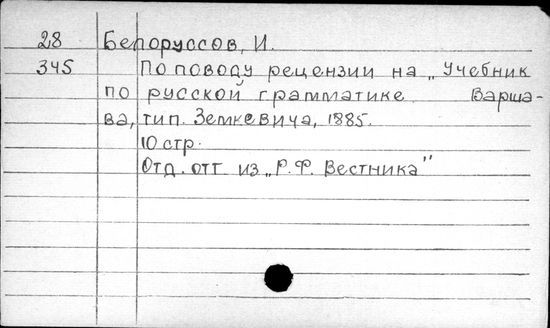 28 Белоруссов, И.
345 По поводу рецензии на „Учебник
по русской грамматике. Варша-
ва, тип. Земкевича, 1885.
10 стр.
Отд. отт из „Р.Ф. Вестника"